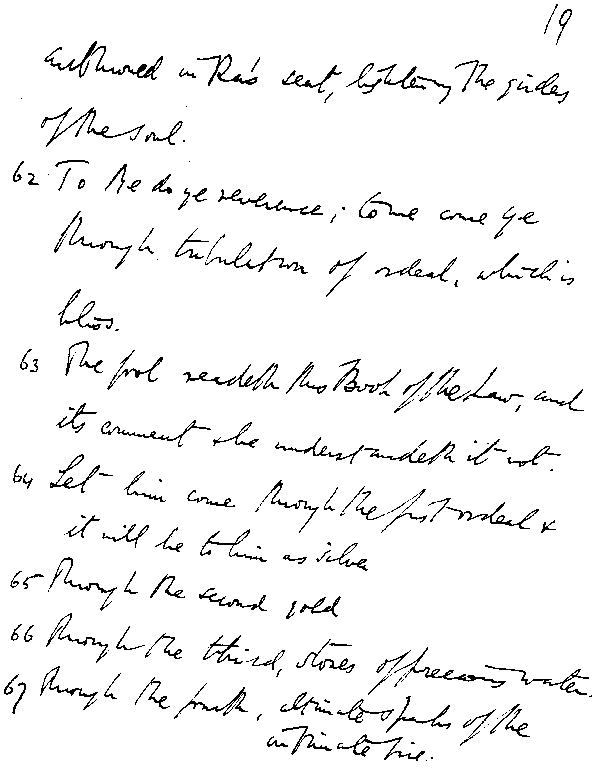 19
enthroned in Ra's seat, lightening the girders
of the soul.
62 To Me do ye reverence; to me come ye
through tribulation of ordeal, which is
bliss.
63 The fool readeth this Book of the Law, and
its comment & he understandeth it not.
64 Let him come through the first ordeal &
it will be to him as silver
65 Through the second gold
66 Through the third, stones of precious water.
67 Through the fourth, ultimate sparks of the
intimate fire.